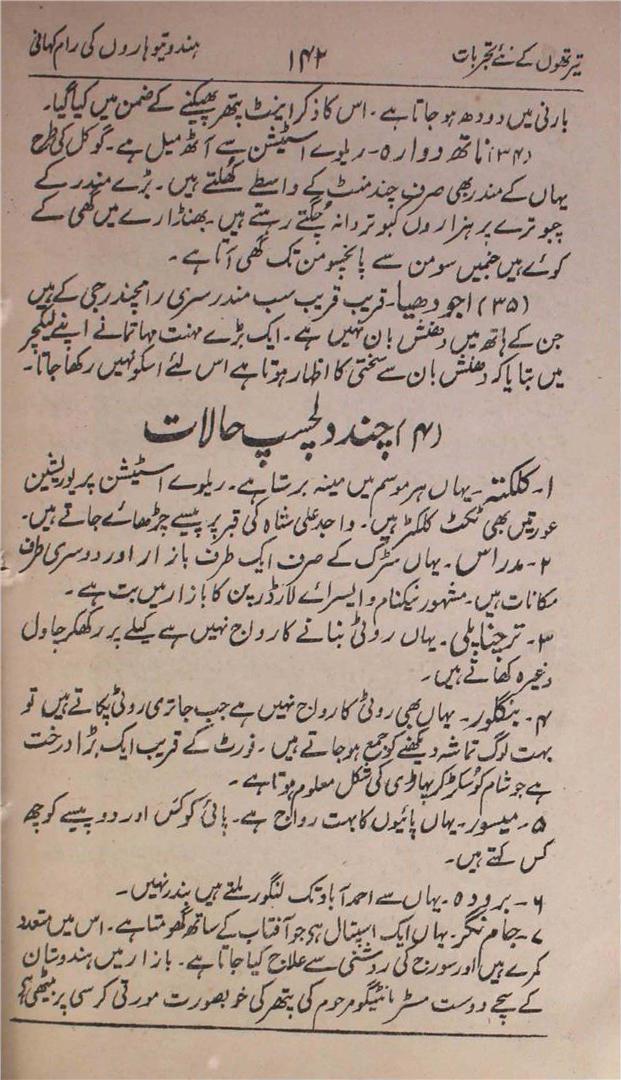 تیرتھوں کے نئے تجربات ۱۴۲ ہندو تیوہاروں کی رام کہانی
بارنی میں دودھ ہو جاتا ہے۔ اس کا ذکر اینٹ پتھر پھینکنے کے ضمن میں کیا گیا۔
(۳۴) ناتھ دوارہ۔ ریلوے اسٹیشن سے آٹھ میل ہے۔ گوکل کی طرح
یہاں کے مندر بھی صرف چند منٹ کے واسطے کھلتے ہیں۔ بڑے مندر کے
چبوترے پر ہزاروں کبوتر دانہ چگتے رہتے ہیں۔ بھنڈارے میں گھی کے
کوئے ہیں جنمیں سو من سے پانچسو من تک گھی آتا ہے۔
(۳۵) اجودھیا۔ قریب قریب سب مندر سری رامچندر جی کے ہیں
جن کے ہاتھ میں دھنش بان نہیں ہے۔ ایک بڑے مہنت مہاتما نے اپنے لیکچر
میں بتایا کہ دھنش بان سے سختی کا اظہار ہوتا ہے اس لئے اسکو نہیں رکھا جاتا۔
(۴) چند دلچسپ حالات
۱۔ کلکتہ۔ یہاں ہر موسم میں مینہ برستا ہے۔ ریلوے اسٹیشن پر یوریشین
عورتیں بھی ٹکٹ کلکٹر ہیں۔ واجد علی شاہ کی قبر پر پیسے چڑھائے جاتے ہیں۔
۲۔ مدراس۔ یہاں سڑک کے صرف ایک طرف بازار اور دوسری طرف
مکانات ہیں۔ مشہور نیکنام وایسرائے لارڈ رپن کا بازار میں بت ہے۔
۳۔ ترچناپلی۔ یہاں روٹی بنانے کا رواج نہیں ہے کیلے پر رکھکر چاول
وغیرہ کھاتے ہیں۔
۴۔ بنگلور۔ یہاں بھی روٹی کا رواج نہیں ہے جب جاتری روٹی پکاتے ہیں تو
بہت لوگ تماشہ دیکھنے کو جمع ہو جاتے ہیں۔ فورٹ کے قریب ایک بڑا درخت
ہے جو شام کو سکڑ کر پہاڑی کی شکل معلوم ہوتا ہے۔
۵۔ میسور۔ یہاں پائیوں کا بہت رواج ہے۔ پائی کو کس اور دو پیسے کو چھ
کس کہتے ہیں۔
۶۔ برودہ۔ یہاں سے احمد آباد تک لنگور ملتے ہیں بندر نہیں۔
۷۔ جام نگر۔ یہاں ایک اسپتال ہی جو آفتاب کے ساتھ گھومتا ہے۔ اس میں متعدد
کمرے ہیں اور سورج کی روشنی سے علاج کیا جاتا ہے۔ بازار میں ہندوستان
کے سچے دوست مسٹر مانٹیگو مرحوم کی پتھر کی خوبصورت مورتی کرسی پر بیٹھی ہے